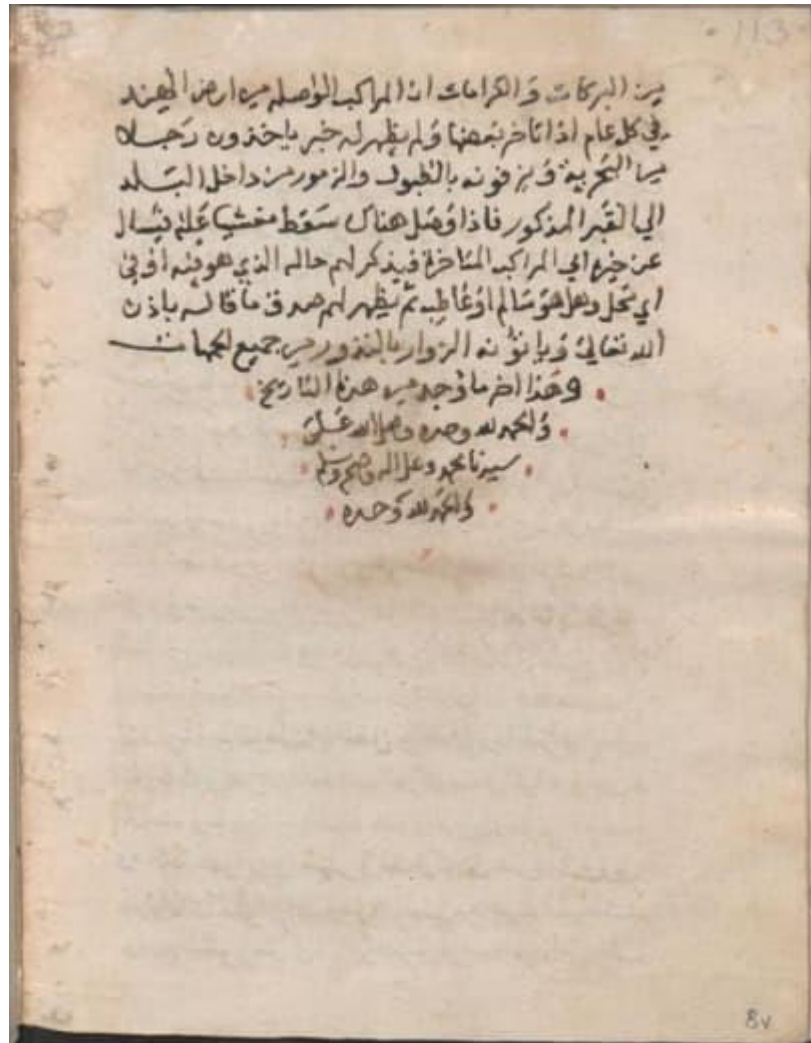 113
من البركات والكرامات ان المراكب الواصله من ارض الهند
في كل عام اذا تاخر بعضها ولم يظهر له خبر ياخذون رجلا
من البحرية ويزفونه بالطبول والزمور من داخل البلد
الي القبر المذكور فاذا وصل هناك سقط مغشيا عليه فيسال
عن خبره اي المراكب المتاخرة فيذكر لهم حاله الذي هو فيه او في
اي محل وهل هو سالم او عاطب ثم يظهر لهم صدق ما قاله باذن
الله تعالي وياتونه الزوار بالنذور من جميع الجهات
وهذا اخر ما وجد من هذه التاريخ
والحمد لله وحده وصلى الله على
سيدنا محمد وعلى اله وصحبه وسلم
والحمد لله وحده
8v